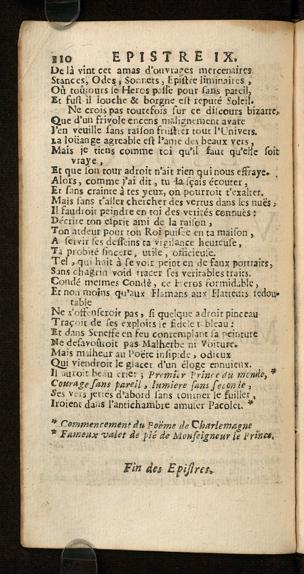 110 EPISTRE IX.
De là vint cet amas d'ouvrages mercenaires
Stances, Odes, Sonnets, Epistre liminaires,
Où toûjours le Heros passe pour sans pareil,
Et fust il louche & borgne est reputé Soleil.
Ne crois pas toutefois sur ce discours bizarre,
Que d'un frivole encens malignement avare
J'en veuille sans raison frustrer tout l'Univers.
La loüange agreable est l'ame des beaux vers,
Mais je tiens comme toi qu'il faut qu'elle soit
vraye,
Et que son tour adroit n'ait rien qui nous effraye.
Alors, comme j'ai dit, tu la sçais écouter,
Et sans crainte à tes yeux, on pourroit t'exalter.
Mais sans t'aller chercher des vertus dans les nuës,
Il faudroit peindre en toi des verités connuës:
Décrire ton esprit ami de la raison,
Ton ardeur pour ton Roi puisée en ta maison,
A servir ses desseins ta vigilance heureuse,
Ta probité sincere, utile, officieuse.
Tel, qui hait à se voir peint en de faux portraits,
Sans chagrin void tracer ses veritables traits.
Condé mesmes Condé, ce Heros formidable,
Et non moins qu'aux Flamans aux Flatteurs redou-
table
Ne s'offenseroit pas, si quelque adroit pinceau
Traçoit de ses exploits le fidele tableau:
Et dans Seneffe en feu contemplant sa peinture
Ne desavoüroit pas Malherbe ni Voiture.
Mais malheur au Poëte insipide, odieux
Qui viendroit le glacer d'un éloge ennuieux.
Il auroit beau crier; Premier Prince du monde, *
Courage sans pareil, lumiere sans seconde,
Ses vers jettés d'abord sans tourner le fuillet,
Iroient dans l'antichambre amuser Pacolet. *
* Commencement du Poëme de Charlemagne
* Fameux valet de pié de Monseigneur le Prince.
Fin des Epistres.